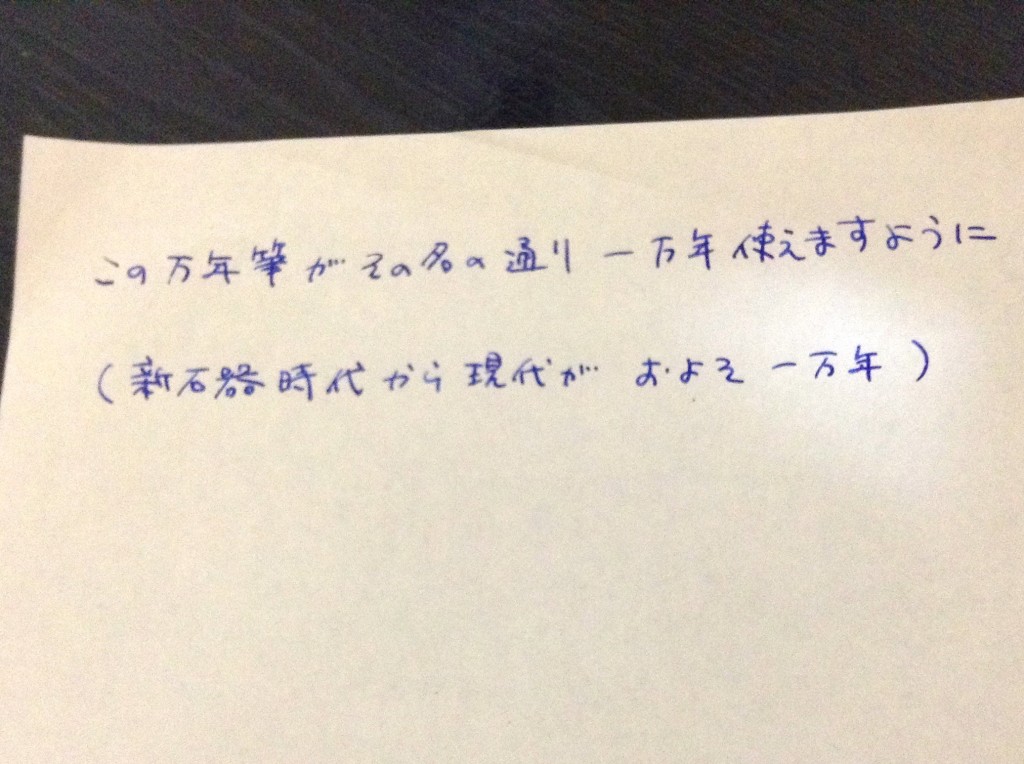 この万年筆がその名の通り一万年使えますように
(新石器時代から現代がおよそ一万年)